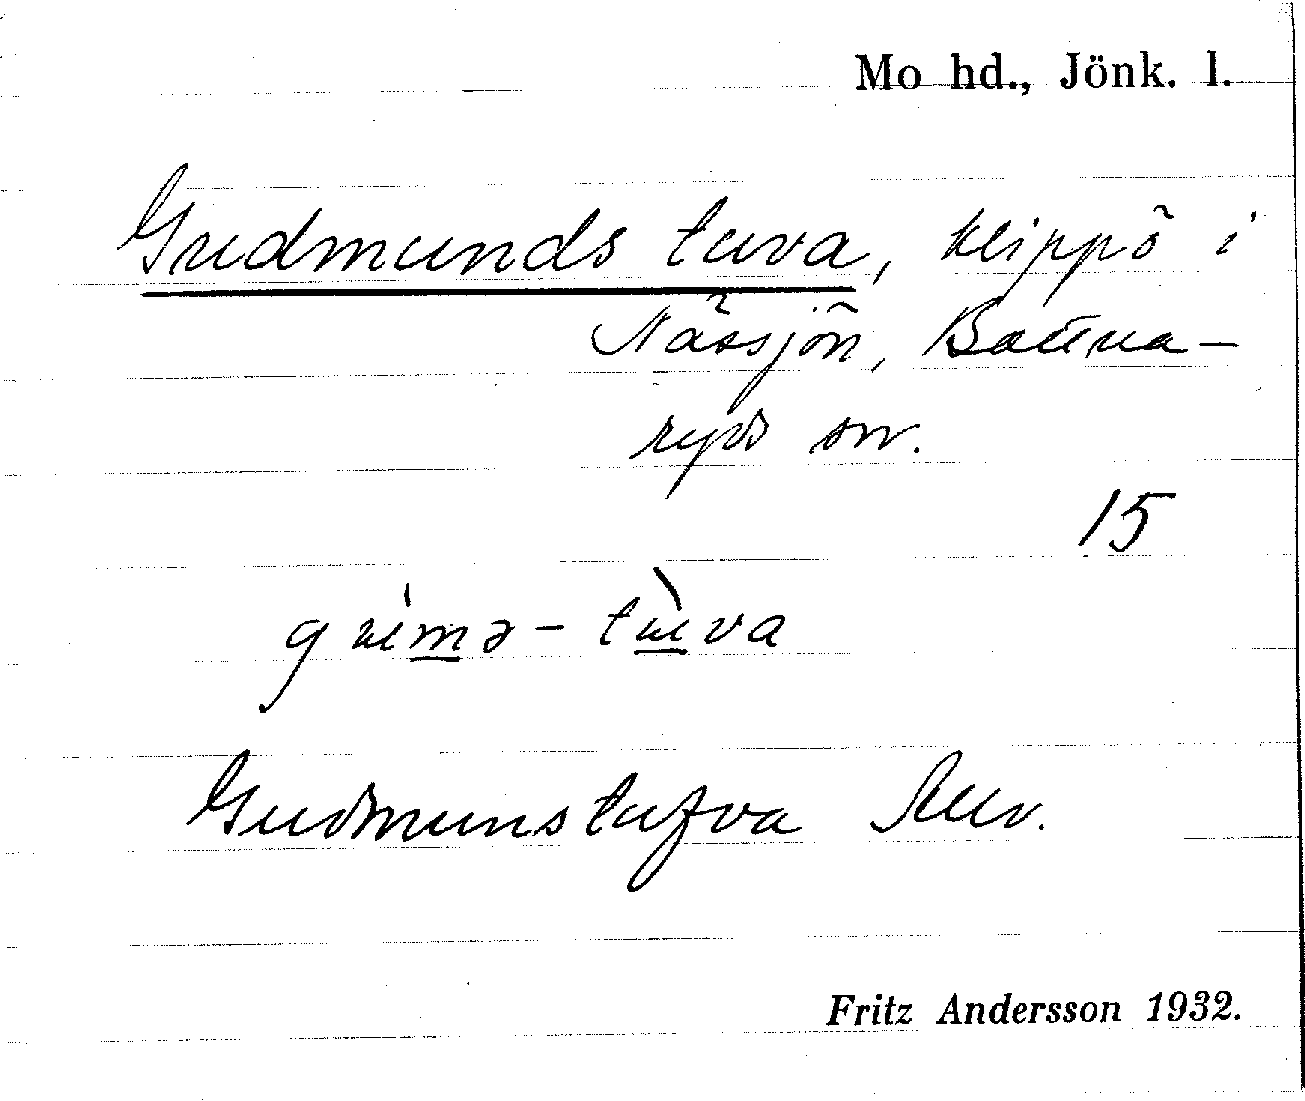 Mo hd., Jönk. l.
Gudmunds tuva, klippö i
Nässjön, Bottna-
ryds sn.
15
Gudmunstufva
Fritz Andersson 1932.